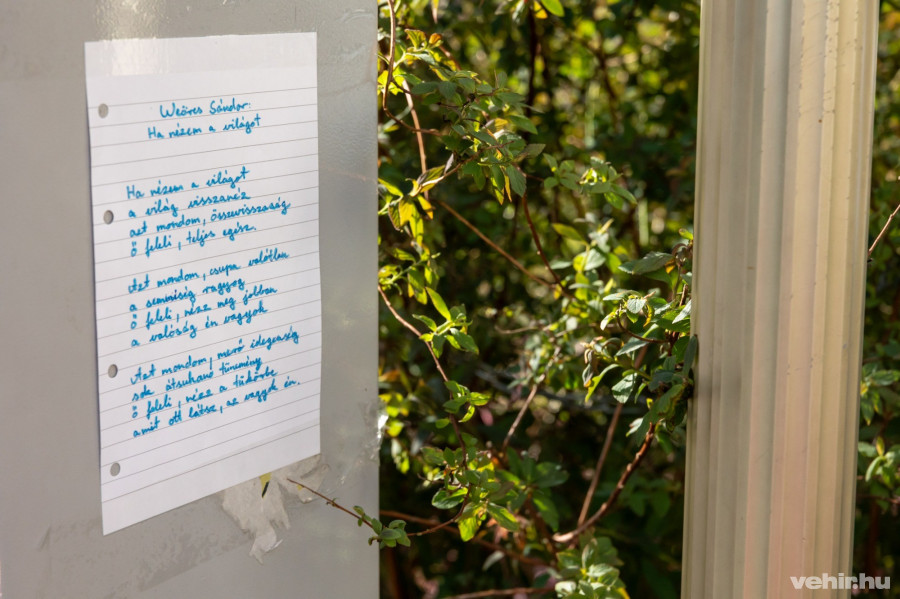 Weöres Sándor:
Ha nézem a világot
Ha nézem a világot
a világ visszanéz
azt mondom, összevisszaság
ő feleli, teljes egész.
Azt mondom, csupa valótlan
a semmiség ragyog
ő feleli, nézz meg jobban
a valóság én vagyok
Azt mondom, merő idegenség
sok átsuhanó tünemény
ő feleli, nézz a tükörbe
amit ott látsz, az vagyok én.
vehir.hu